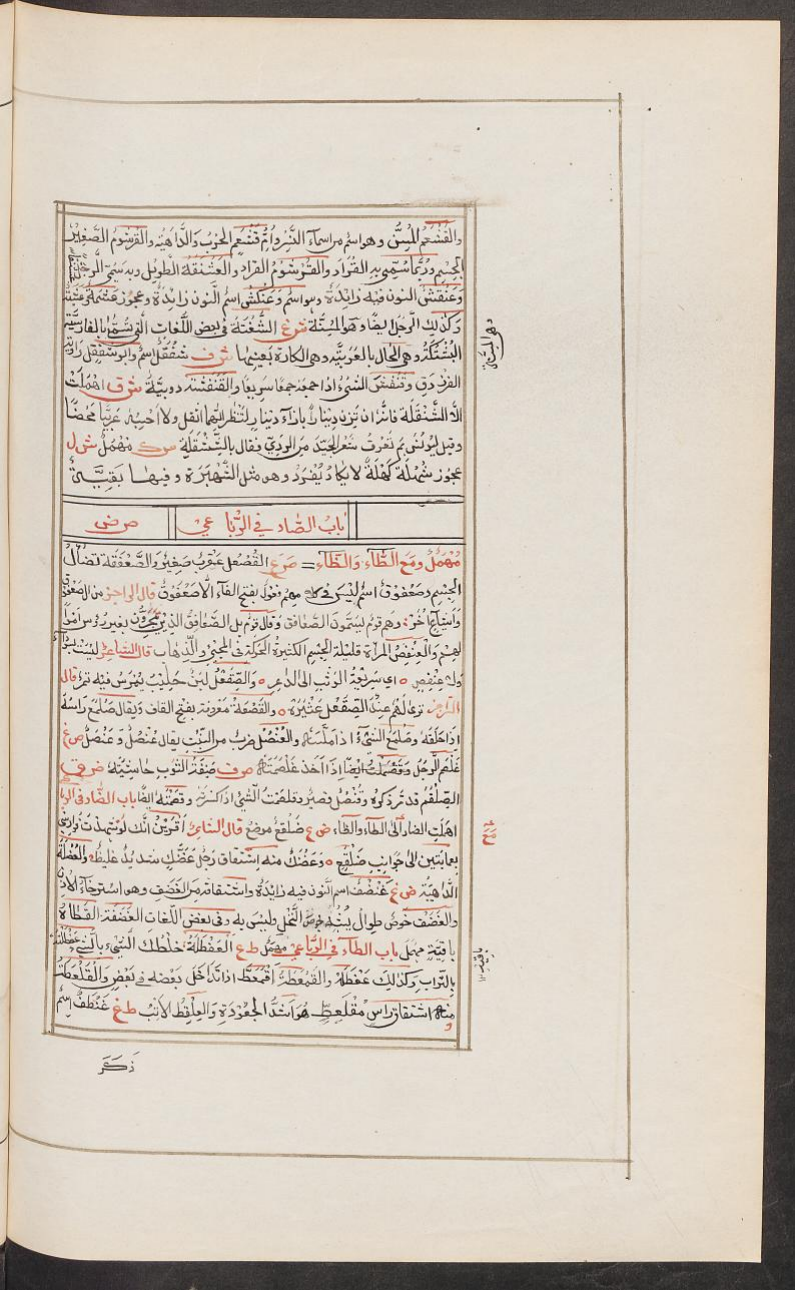 والقشعم المسن وهو اسم من اسماء النسر وام قشعم الحرب والداهية والقرشوم الصغير
الجسم وربما سمى به القراد والقرشوم القراد والعشنقة الطويل وبه سمى الرجل
وعنقش النون فيه زائدة وهو اسم وعنكش اسم النون زائدة وعجوز
وكذلك الرجل ايضا وهو المسنة ش غ الشغنة في بعض اللغات التى تسمى بالفارسية
وهى الحال بالعربية وهى الكارة بعينها ش ف شفقل اسم وابو شفقل راوية
الفرزدق وقنفش الشىء اذا جمعه جمعا سريعا والقنفشة دويبة ش ق اهملت
الا الشنقلة فانها ان تزن دينارا بازاء دينار لتنظر ايهما اثقل ولا احسبه عربيا محضا
وقيل ليونس بم تعرف شعر الجيد من الردى فقال بالششقلة ش ك مهمل ش ل
عجوز شهملة كهلة لا يكاد يفرد وهو مثل الشهبرة وفيها بقية
باب الصاد في الرباعي ص ض
مهمل ومع الطاء والظاء = ص ع القصعل عقرب صغير والصعفقة تضاؤل
الجسم وصعفوق اسم ليس فى كلامهم فعلول بفتح الفاء الا صعفوق قال الراجز من ال صعفوق
واتباع اخر وهم قوم يسمون الصعافق وقال قوم بل الصعافق الذين يتجرون بغير رؤس اموال
لهم والعنفص المراة قليلة الجسم الكثيرة الحركة فى المجئ والذهاب قال الشاعر ليست بسوداء
ولا عنفص اى سريعة الوثب الى الذعر والصقعل لبن حليب يمرس فيه تمر قال
الراجز ترى لهم عند الصقعل عثيره والقصعة معروفة بفتح القاف ويقال صلمع راسه
اذا حلقه وصلمع الشىء اذا ملسه والعنصل ضرب من النبت يقال عنصل وعنصل ص غ
غلصم الرجل وقصملت ايضا اذا اخذ غلصمته ص ف صنفة الثوب حاشيته ص ق
الصلقم قد مر ذكره وقنصل قصير وقلصت الشئ اذا كسرته وقصمته ايضا باب الضاد فى الرباعي
اهملت الضاد الى الطاء والظاء ض ع ضلفع موضع قال الشاعر اقرين انك لو شهدت فوارسى
بعمايتين الى جوانب ضلفع وعضنك منه اشتقاق رجل عضنك شديد غليظ والعضلة
الداهية ض غ غنضف اسم النون فيه زائدة واشتقاقه من الغضف وهو استرخاء الاذن
والغضف خوص طوال يشبه خوص النخل وليس به وفى بعض اللغات الغضفة القطاة
باقيه مهمل باب الطاء فى الرباعي مهمل ط ع العفظلة خلطك الشىء بالشىء عفظلته
بالتراب وكذلك عفطة والقمعطة اقمعط اذا تداخل بعضه فى بعض والقلعطة
منه اشتقاق راس مقلعط هو اشد الجعودة والعلقط الاتب ط غ غنطف اسم
ذكر
باقيه